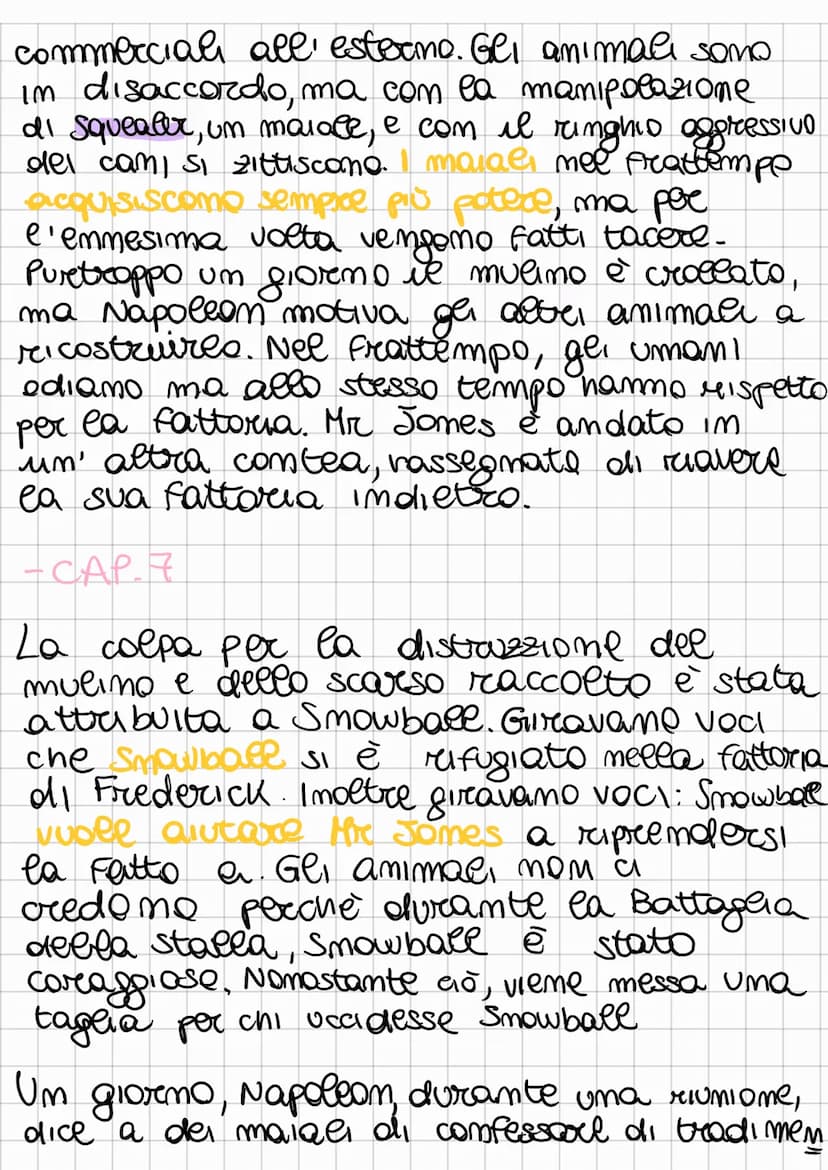 commerciali all'esterno. Gli animali sono
in disaccordo, ma con la manipolazione
di Squealer, un maiale, e con il ringhio aggressivo
dei cani si zittiscono. I maiali nel frattempo
acquisiscono sempre più potere, ma per
l'ennesima volta vengono fatti tacere.
Purtroppo un giorno il mulino è crollato,
ma Napoleon motiva gli altri animali a
ricostruirlo. Nel frattempo, gli umani
odiano ma allo stesso tempo hanno rispetto
per la fattoria. Mr Jones è andato in
un'altra contea, rassegnato di riavere
la sua fattoria indietro.
- CAP. 7
La colpa per la distruzzione del
mulino e dello scarso raccolto è stata
attribuita a Snowball. Giravano voci
che Snowball si è rifugiato nella fattoria
di Frederick. Inoltre giravano voci: Snowball
vuole aiutare Mr Jones a riprendersi
la fatto a. Gli animali non ci
credono perchè durante la Battaglia
della stalla, Snowball è stato
coraggioso. Nonostante ciò, viene messa una
taglia per chi uccidesse Snowball
Un giorno, Napoleon, durante una riunione,
dice a dei maiali di confessare di tradimen